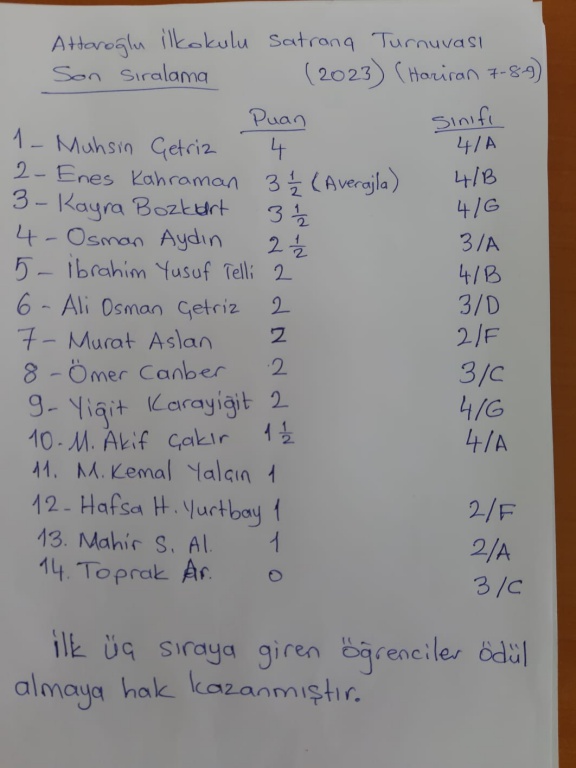 Attaroğlu İlkokulu Satranç Turnuvası
Son Sıralama (2023) (Haziran 7-8-9)
Puan Sınıfı
1- Muhsin Çetriz 4 4/A
2- Enes Kahraman 3 1/2 (Averajla) 4/B
3- Kayra Bozkurt 3 1/2 4/G
4- Osman Aydın 2 1/2 3/A
5- İbrahim Yusuf Telli 2 4/B
6- Ali Osman Çetriz 2 3/D
7- Murat Aslan 2 2/F
8- Ömer Canber 2 3/C
9- Yiğit Karayiğit 2 4/G
10- M. Akif Çakır 1 1/2 4/A
11. M. Kemal Yalçın 1
12- Hafsa H. Yurtbay 1 2/F
13. Mahir S. Al. 1 2/A
14. Toprak Ar. 0 3/C
İlk üç sıraya giren öğrenciler ödül
almaya hak kazanmıştır.